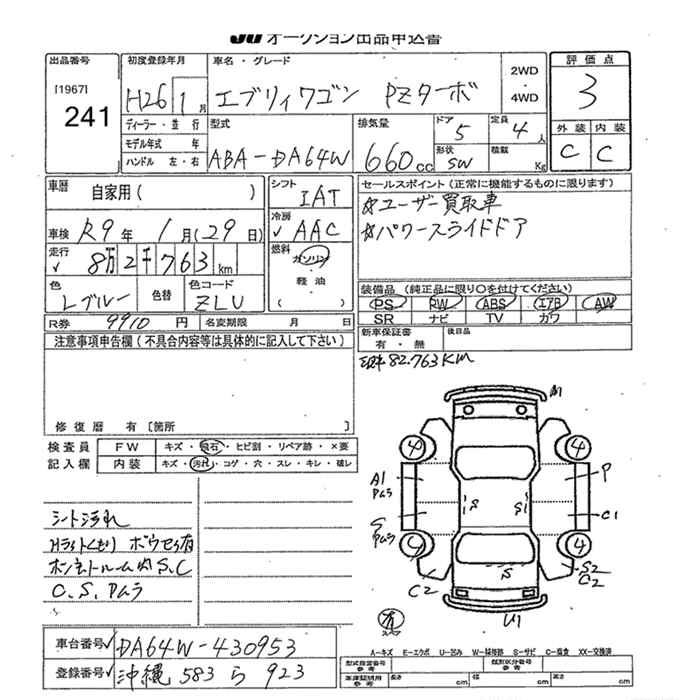 JU オークション出品申込書
出品番号 初度登録年月 車名・グレード 2WD・4WD 評価点
[1967] 241 H26 1月 エブリィワゴン PZターボ 3
ディーラー・並行 型式 排気量 ドア 5 定員 4人 外装 内装
モデル年式 年 ABA-DA64W 660cc 形状 SW 積載 Kg C C
ハンドル 左・右
車歴 自家用( ) シフト IAT セールスポイント(正常に機能するものに限ります)
車検 R9年 1月(29日) 冷房 AAC ☆ユーザー買取車
走行 8万2千763km 燃料 ガソリン・軽油 ☆パワースライドドア
色 Lブルー 色替 色コード ZLU
装備品(純正品に限り○を付けてください)
PS RW ABS エアB AW
SR ナビ TV カワ
R券 9910円 名変期限 月 日 新車保証書 有・無 後日品
注意事項申告欄(不具合内容等は具体的に記入して下さい)
82.763KM
修復歴 有 [箇所 ]
検査員 FW キズ・飛石・ヒビ割・リペア跡・×要
記入欄 内装 キズ・汚れ・コゲ・穴・スレ・キレ・破レ
シート汚れ
Hライトくもり ボウセイ有
ボンネットルーム内 S.C
C.S.Pムラ
4 4
A1 Pムラ P
S S1
S Pムラ C1
4 4
C2 S S2 C2
有 スペア U1
A-キズ E-エクボ U-凹み W-補修跡 S-サビ C-腐食 XX-交換済
車台番号 DA64W-430953
登録番号 沖縄 583 ら 923
型式指定番号 参考 類別区分番号 参考
車庫証明用 参考 長さ cm 幅 cm 高さ cm